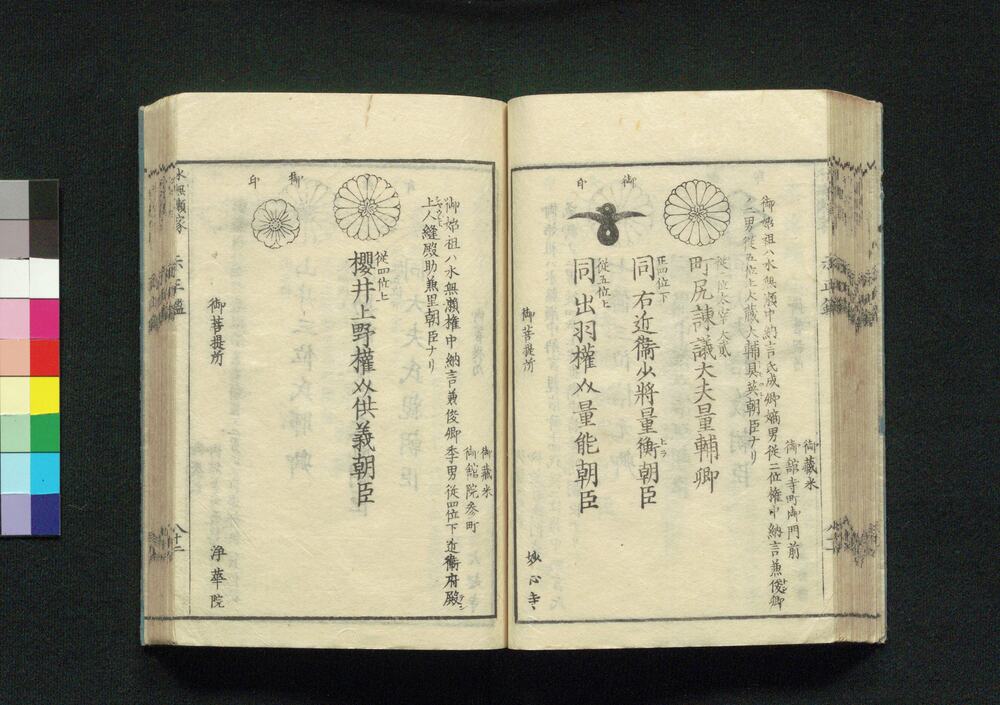 御藏米
御舘寺町御門前
御始祖ハ水無瀬中納言氏成卿嫡男従二位権中納言兼俊卿
二男従五位上大藏大輔具英朝臣ナリ
従二位太宰大貳
町尻諫議大夫量輔卿
正四位下
同右近衞少將量衡朝臣
上ラ
従五位上
同出羽權介量能朝臣
御印
御菩提所
妙心寺
御藏米
御舘院参町
御始祖ハ水無瀬権中納言兼俊卿季男従四位下近衞府殿
上人縫殿助兼里朝臣ナリ
従四位上
櫻井上野權介供義朝臣
御印
御菩提所
浄華院
水無瀬家
八十二